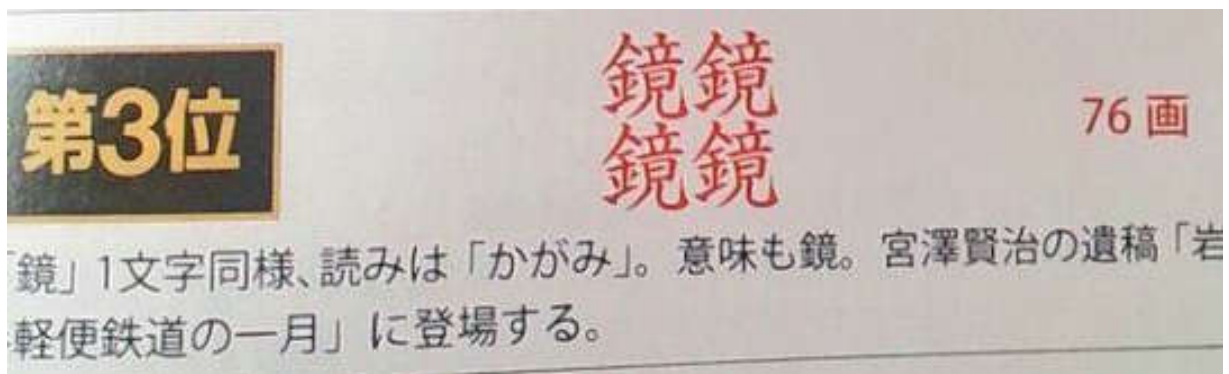 第3位
鏡鏡
鏡鏡
76画
「鏡」1文字同様、読みは「かがみ」。意味も鏡。宮澤賢治の遺稿「岩
軽便鉄道の一月」に登場する。